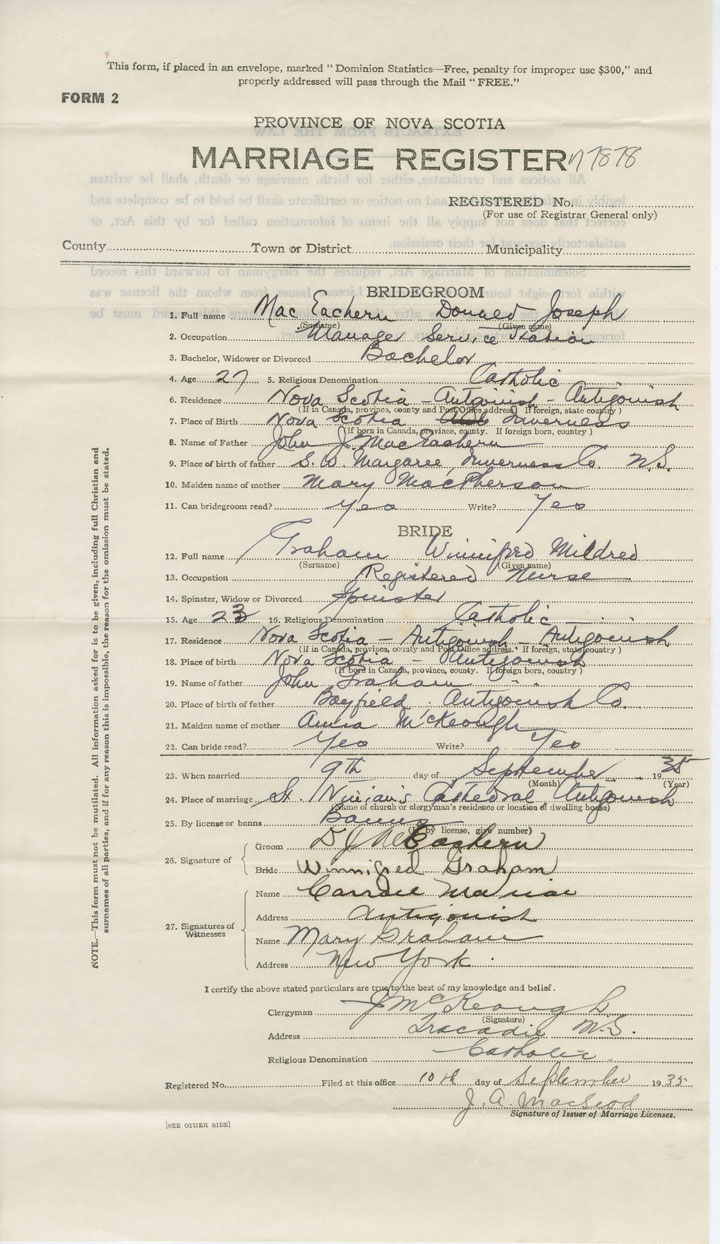 This form, if placed in an envelope, marked "Dominion Statistics—Free, penalty for improper use $300," and
properly addressed will pass through the Mail "FREE."
FORM 2
PROVINCE OF NOVA SCOTIA
MARRIAGE REGISTER
REGISTERED No.
(For use of Registrar General only)
County Town or District Municipality
BRIDEGROOM
1. Full name Mac Eachern Donald Joseph
(Surname) (Given name)
2. Occupation Manager Service Station
3. Bachelor, Widower or Divorced Bachelor
4. Age 27 5. Religious Denomination Catholic
6. Residence Nova Scotia - Antigonish - Antigonish
(If in Canada, province, county and Post Office address) If foreign, state country)
7. Place of Birth Nova Scotia Inverness
(If born in Canada, province, county. If foreign born, country)
8. Name of Father John J. MacEachern
9. Place of birth of father S. W. Margaree, Inverness Co N.S.
10. Maiden name of mother Mary MacPherson
11. Can bridegroom read? Yes Write? Yes
BRIDE
12. Full name Graham Winnifred Mildred
(Surname) (Given name)
13. Occupation Registered Nurse
14. Spinster, Widow or Divorced Spinster
15. Age 23 16. Religious Denomination Catholic
17. Residence Nova Scotia - Antigonish - Antigonish
(If in Canada, province, county and Post Office address. If foreign, state country)
18. Place of birth Nova Scotia - Antigonish
(If born in Canada, province, county. If foreign born, country)
19. Name of father John Graham
20. Place of birth of father Bayfield, Antigonish Co
21. Maiden name of mother Annia McKeough
22. Can bride read? Yes Write? Yes
23. When married 9th day of September 1935
(Month) (Year)
24. Place of marriage St. Ninian's Cathedral, Antigonish
(Name of church or clergyman's residence or location of dwelling house)
25. By license or banns Banns
(If by license, give number)
26. Signature of
Groom D J McEachern
Bride Winnifred Graham
27. Signatures of Witnesses
Name
Address Antigonish
Name Mary Graham
Address New York.
I certify the above stated particulars are true to the best of my knowledge and belief.
Clergyman J McKeough
(Signature)
Address Tracadie N.S.
Religious Denomination Catholic
Registered No. Filed at this office 10th day of September 1935
J. A. MacLeod
Signature of Issuer of Marriage Licenses.
[SEE OTHER SIDE]
NOTE.—This form must not be mutilated. All information asked for is to be given, including full Christian and
surnames of all parties, and if for any reason this is impossible, the reason for the omission must be stated.